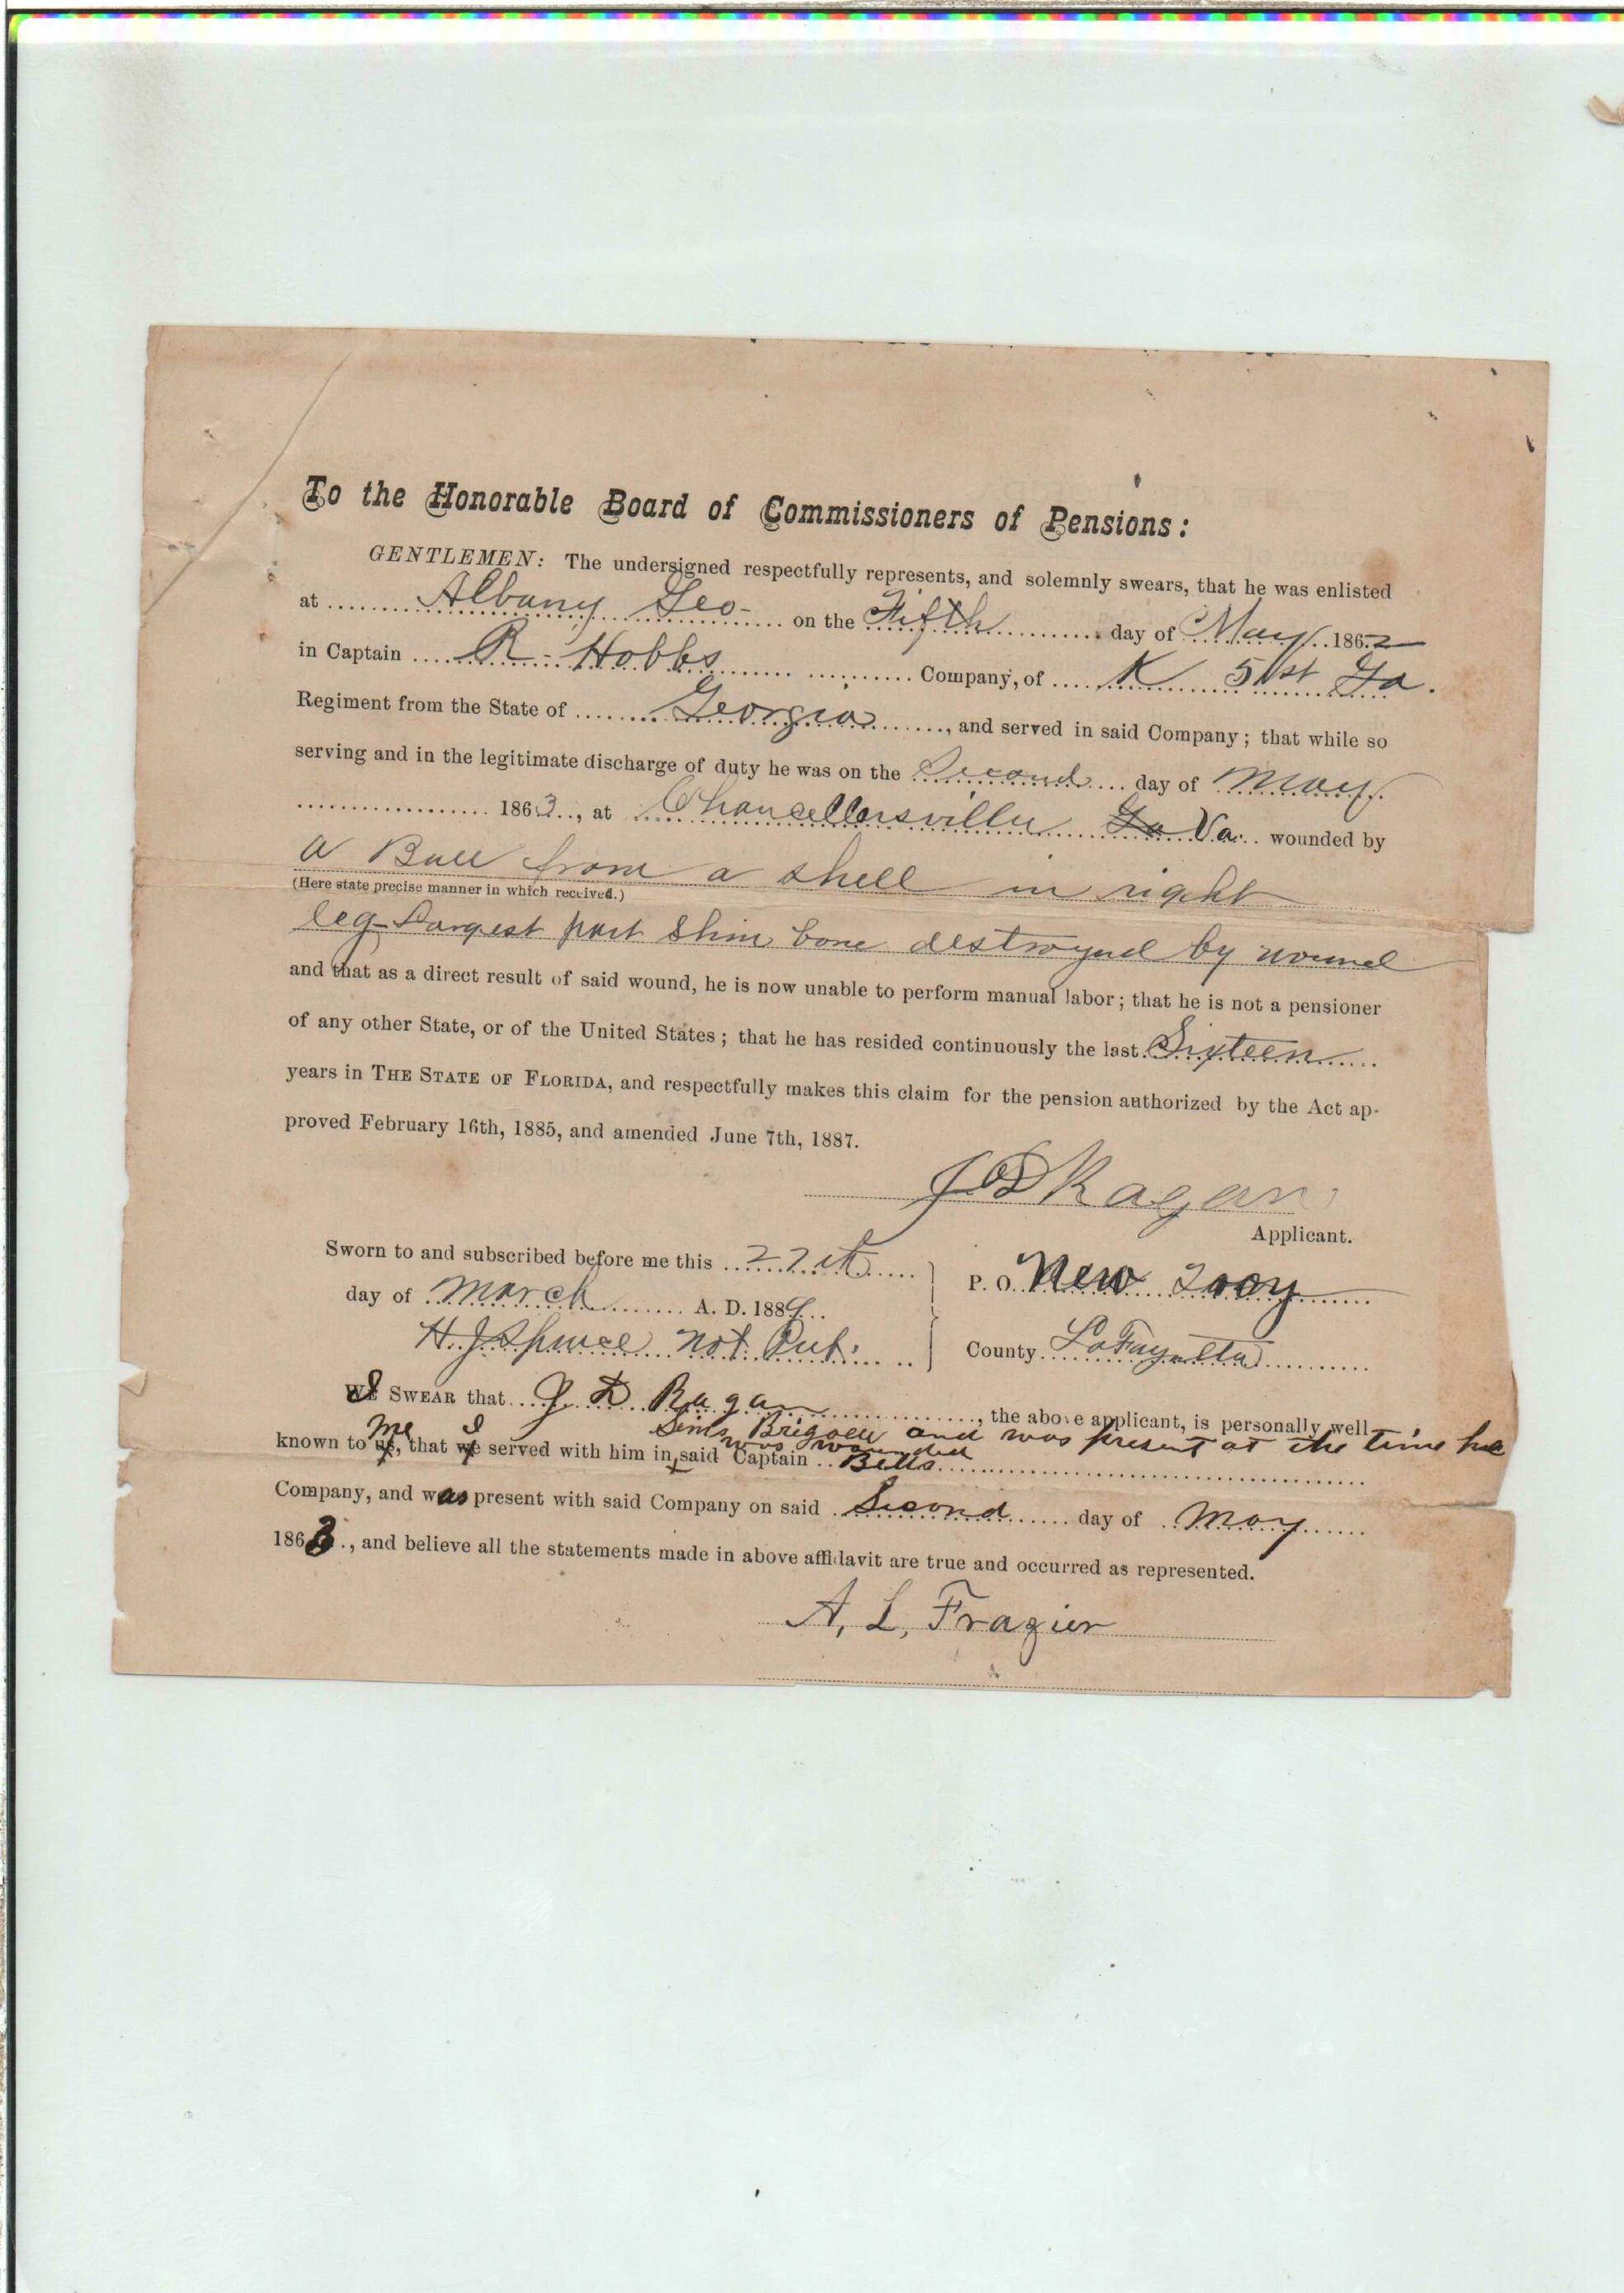 To the Honorable Board of Commissioners of Pensions:
GENTLEMEN: The undersigned respectfully represents, and solemnly swears, that he was enlisted
at Albany Geo- on the Fifth day of May 1862
in Captain R. Hobbs Company, of K 51st Ga.
Regiment from the State of Georgia, and served in said Company; that while so
serving and in the legitimate discharge of duty he was on the Second day of May
1863, at Chancellorsville Ga Va. wounded by
a Ball from a shell in right
(Here state precise manner in which received.)
leg- Largest part Shin bone destroyed by wound
and that as a direct result of said wound, he is now unable to perform manual labor; that he is not a pensioner
of any other State, or of the United States; that he has resided continuously the last Sixteen
years in THE STATE OF FLORIDA, and respectfully makes this claim for the pension authorized by the Act ap-
proved February 16th, 1885, and amended June 7th, 1887.
J D Ragan
Applicant.
Sworn to and subscribed before me this 22
day of March A. D. 1889
P. O. New Troy
H. J. not Pub.
County LaFayette
I SWEAR that J D Ragan, the above applicant, is personally well
me I Sims Brigade and was present at the time he
known to us, that we served with him in said was wounded Captain Betts
Company, and was present with said Company on said Second day of May
1863, and believe all the statements made in above affidavit are true and occurred as represented.
A. L. Frazier